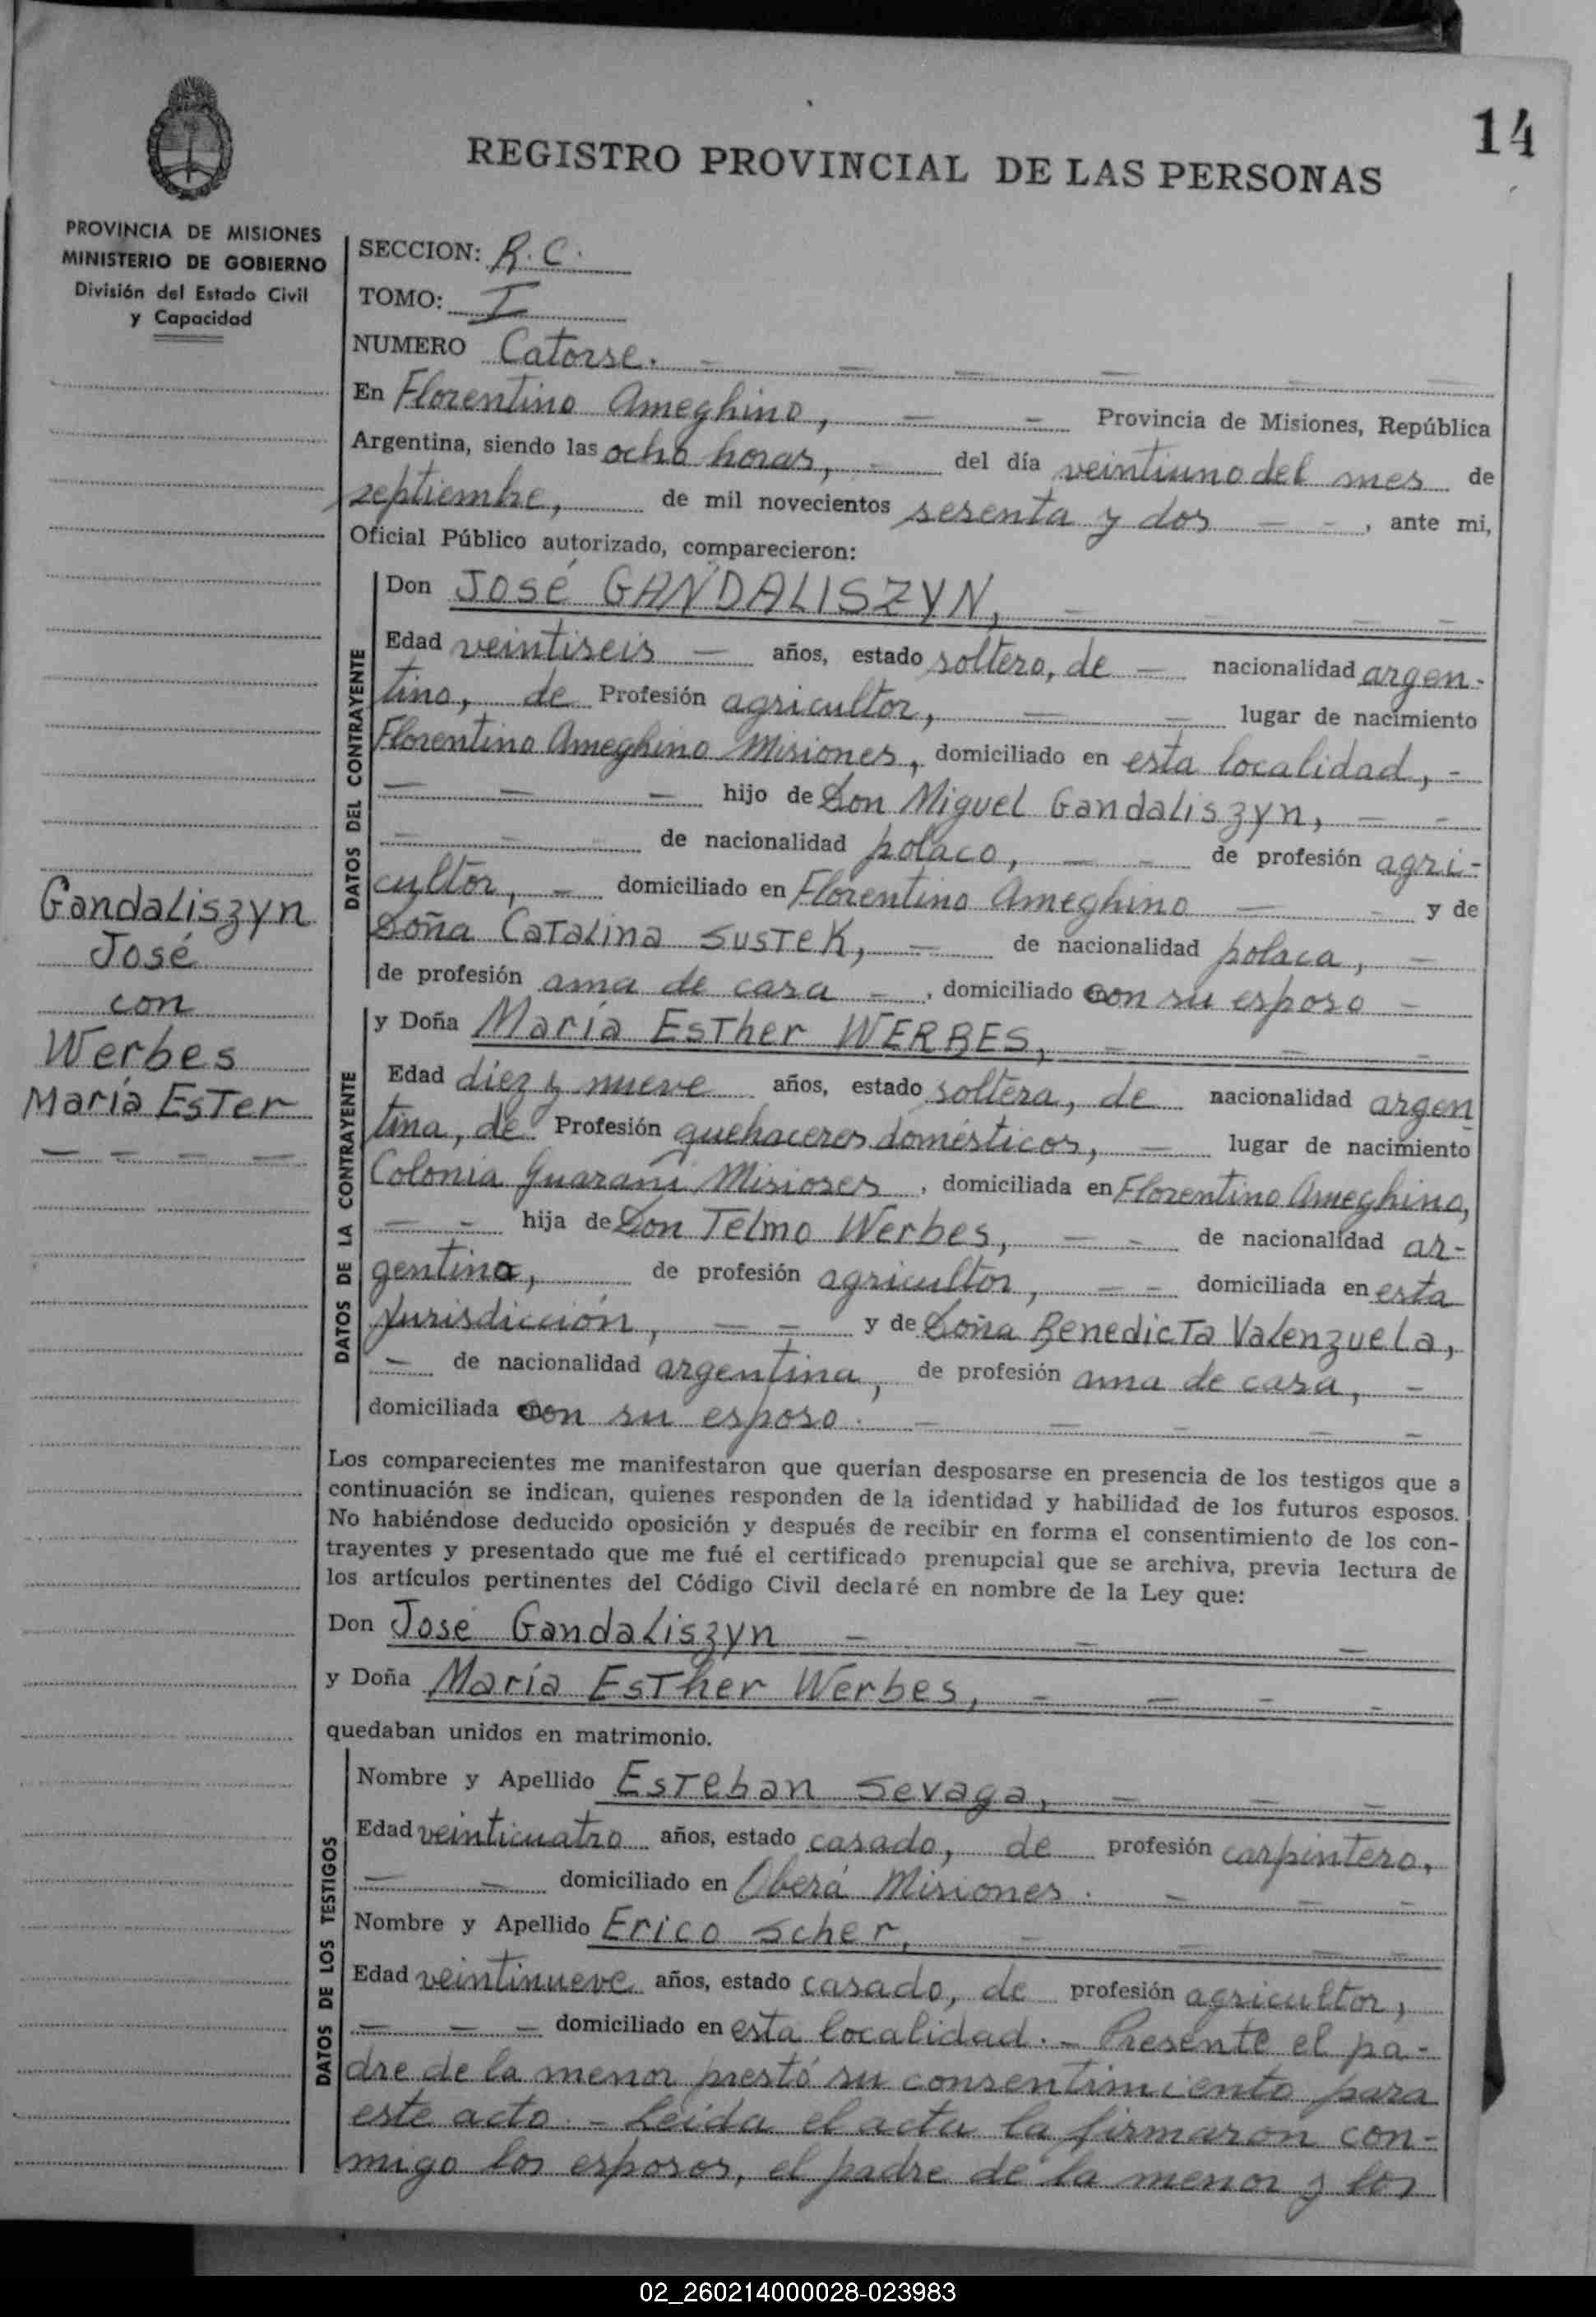 14
REGISTRO PROVINCIAL DE LAS PERSONAS
PROVINCIA DE MISIONES
MINISTERIO DE GOBIERNO
División del Estado Civil
y Capacidad
SECCION: R. C.
TOMO: I
NUMERO Catorse. -
En Florentino Ameghino, - - Provincia de Misiones, República
Argentina, siendo las ocho horas, - del día veintiuno del mes de
septiembre, de mil novecientos sesenta y dos - - , ante mi,
Oficial Público autorizado, comparecieron:
DATOS DEL CONTRAYENTE
Don JOSÉ GANDALISZYN, -
Edad veintiseis - años, estado soltero, de - nacionalidad argen-
tino, de Profesión agricultor, - - lugar de nacimiento
Florentino Ameghino Misiones, domiciliado en esta localidad, -
- - - hijo de Don Miguel Gandaliszyn, - -
- - - de nacionalidad polaco, - - de profesión agri-
cultor, - domiciliado en Florentino Ameghino - - y de
Doña Catalina Sustek, - de nacionalidad polaca, -
de profesión ama de casa - , domiciliado con su esposo -
Gandaliszyn
José
con
Werbes
María Ester
- - - -
DATOS DE LA CONTRAYENTE
y Doña María Esther WERBES, - - -
Edad diez y nueve años, estado soltera, de nacionalidad argen
tina, de Profesión quehaceres domésticos, - lugar de nacimiento
Colonia Guaraní Misioses , domiciliada en Florentino Ameghino,
- - hija de Don Telmo Werbes, - - de nacionalidad ar-
gentina, de profesión agricultor, - - domiciliada en esta
Jurisdicción, - - y de Doña Benedicta Valenzuela,
- de nacionalidad argentina, de profesión ama de casa, -
domiciliada con su esposo. - - - - -
Los comparecientes me manifestaron que querían desposarse en presencia de los testigos que a
continuación se indican, quienes responden de la identidad y habilidad de los futuros esposos.
No habiéndose deducido oposición y después de recibir en forma el consentimiento de los con-
trayentes y presentado que me fué el certificado prenupcial que se archiva, previa lectura de
los artículos pertinentes del Código Civil declaré en nombre de la Ley que:
Don José Gandaliszyn - - -
y Doña María Esther Werbes, - - - -
quedaban unidos en matrimonio.
DATOS DE LOS TESTIGOS
Nombre y Apellido Esteban Sevaga, - - -
Edad veinticuatro años, estado casado, de profesión carpintero,
- - domiciliado en Oberá Misiones. - - -
Nombre y Apellido Erico Scher, - - - -
Edad veintinueve años, estado casado, de profesión agricultor,
- - - domiciliado en esta localidad. - Presente el pa-
dre de la menor prestó su consentimiento para
este acto. - Leida el acta la firmaron con-
migo los esposos, el padre de la menor y los
02_260214000028-023983